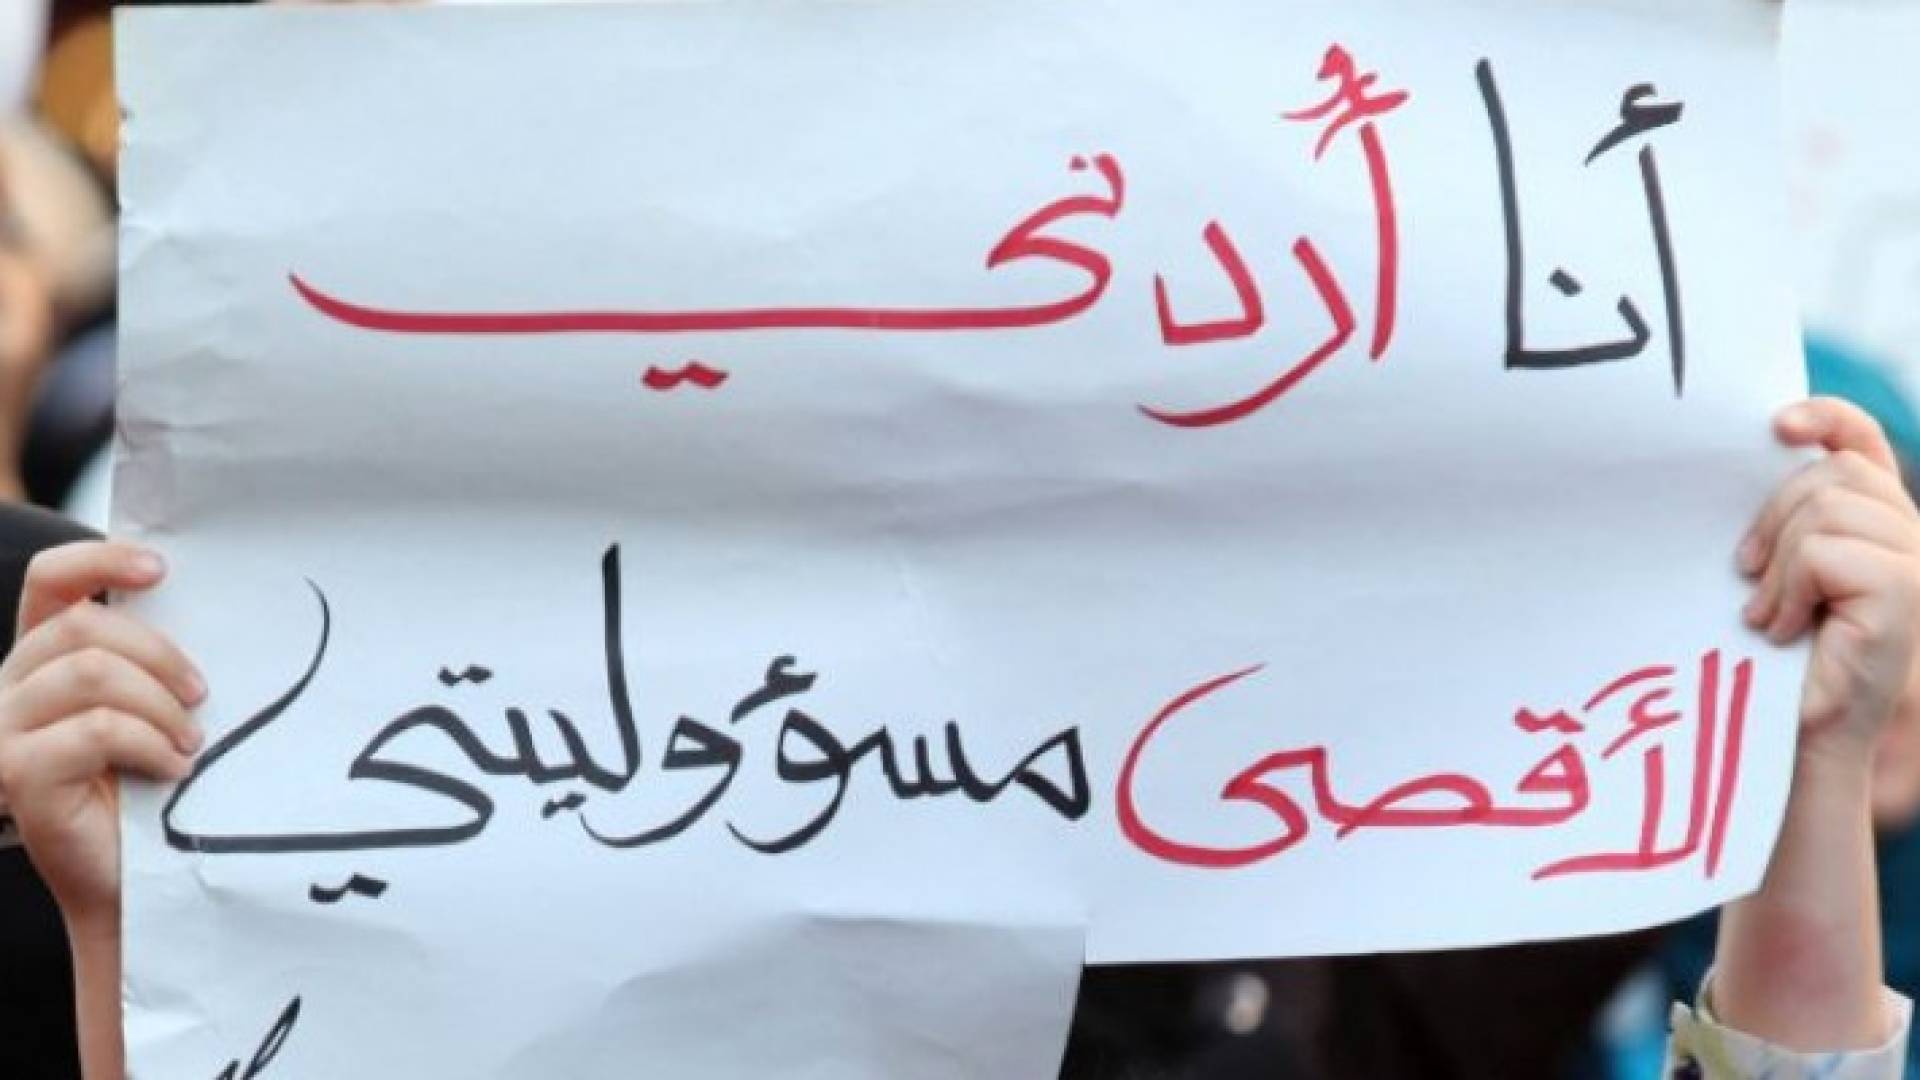 أنا أُردني
الأَقصى مسؤوليتي